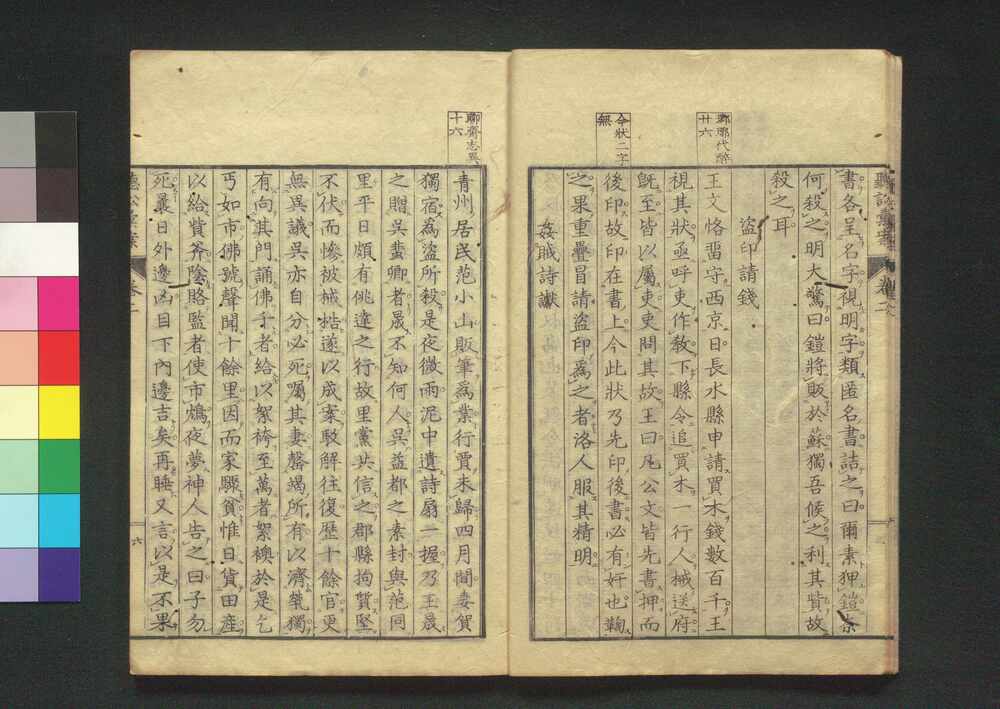 書各呈名字視明字類匿名書詰之曰爾素狎鎧奈
何殺之明大驚曰鎧將販於蘇獨吾候之利其貲故
殺之耳
盜印請錢
瑯琊代醉
廿六
王文恪畱守西京日長水縣申請買木錢數百千王
視其狀亟呼吏作敎下縣令追買木一行人械送府
旣至皆以屬吏吏問其故王曰凡公文皆先書押而
今狀二字
無
後印故印在書上今此狀乃先印後書必有奸也鞠
之果重疊冒請盜印爲之者洛人服其精明
姦賊詩讖
聊齋志異
十六
青州居民范小山販筆爲業行賈未歸四月間妻賀
獨宿爲盜所殺是夜微雨泥中遺詩扇一握乃王晟
之贈吳蜚卿者晟不知何人吳益都之素封與范同
里平日頗有佻達之行故里黨共信之郡縣拘質堅
不伏而慘被械梏遂以成案駁解往復歷十餘官更
無異議吳亦自分必死囑其妻罄竭所有以濟煢獨
有向其門誦佛千者給以絮袴至萬者絮襖於是乞
丐如市佛號聲聞十餘里因而家驟貧惟日貨田產
以給貲斧陰賂監者使市鴆夜夢神人告之曰子勿
死曩日外邊凶目下內邊吉矣再睡又言以是不果
六